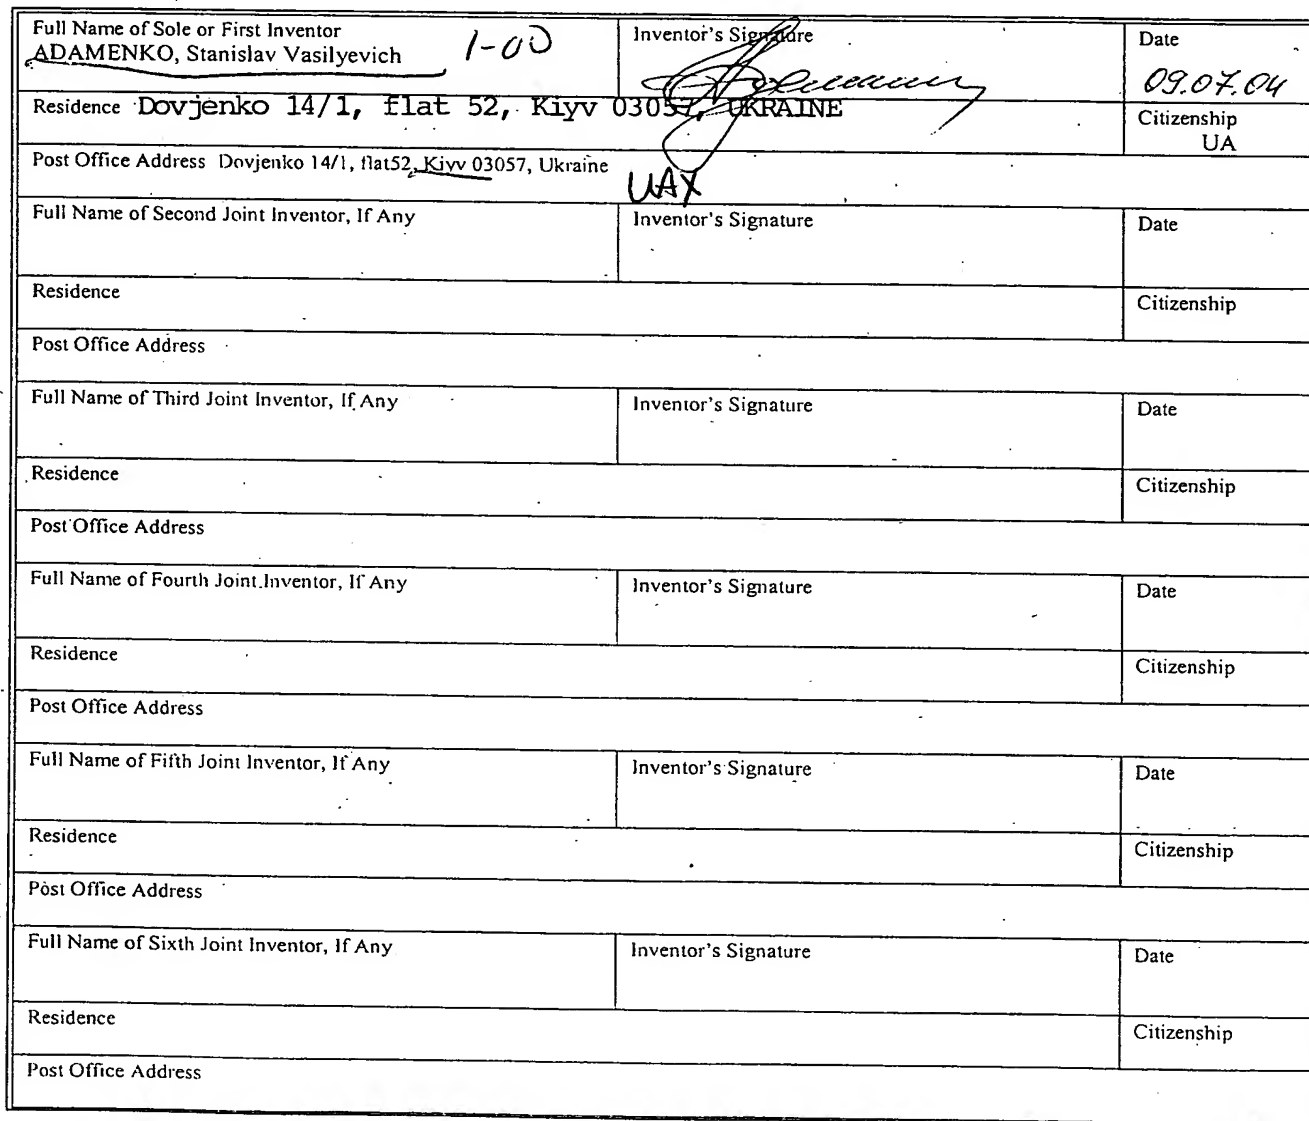 Full Name of Sole or First Inventor
ADAMENKO, Stanislav Vasilyevich
1-00
Inventor's Signature
Date
09.07.04
Residence Dovjenko 14/1, flat 52, Kiyv 03057, UKRAINE
Citizenship
UA
Post Office Address Dovjenko 14/1, flat52, Kiyv 03057, Ukraine
UAX
Full Name of Second Joint Inventor, If Any
Inventor's Signature
Date
Residence
Citizenship
Post Office Address
Full Name of Third Joint Inventor, If Any
Inventor's Signature
Date
Residence
Citizenship
Post Office Address
Full Name of Fourth Joint Inventor, If Any
Inventor's Signature
Date
Residence
Citizenship
Post Office Address
Full Name of Fifth Joint Inventor, If Any
Inventor's Signature
Date
Residence
Citizenship
Post Office Address
Full Name of Sixth Joint Inventor, If Any
Inventor's Signature
Date
Residence
Citizenship
Post Office Address